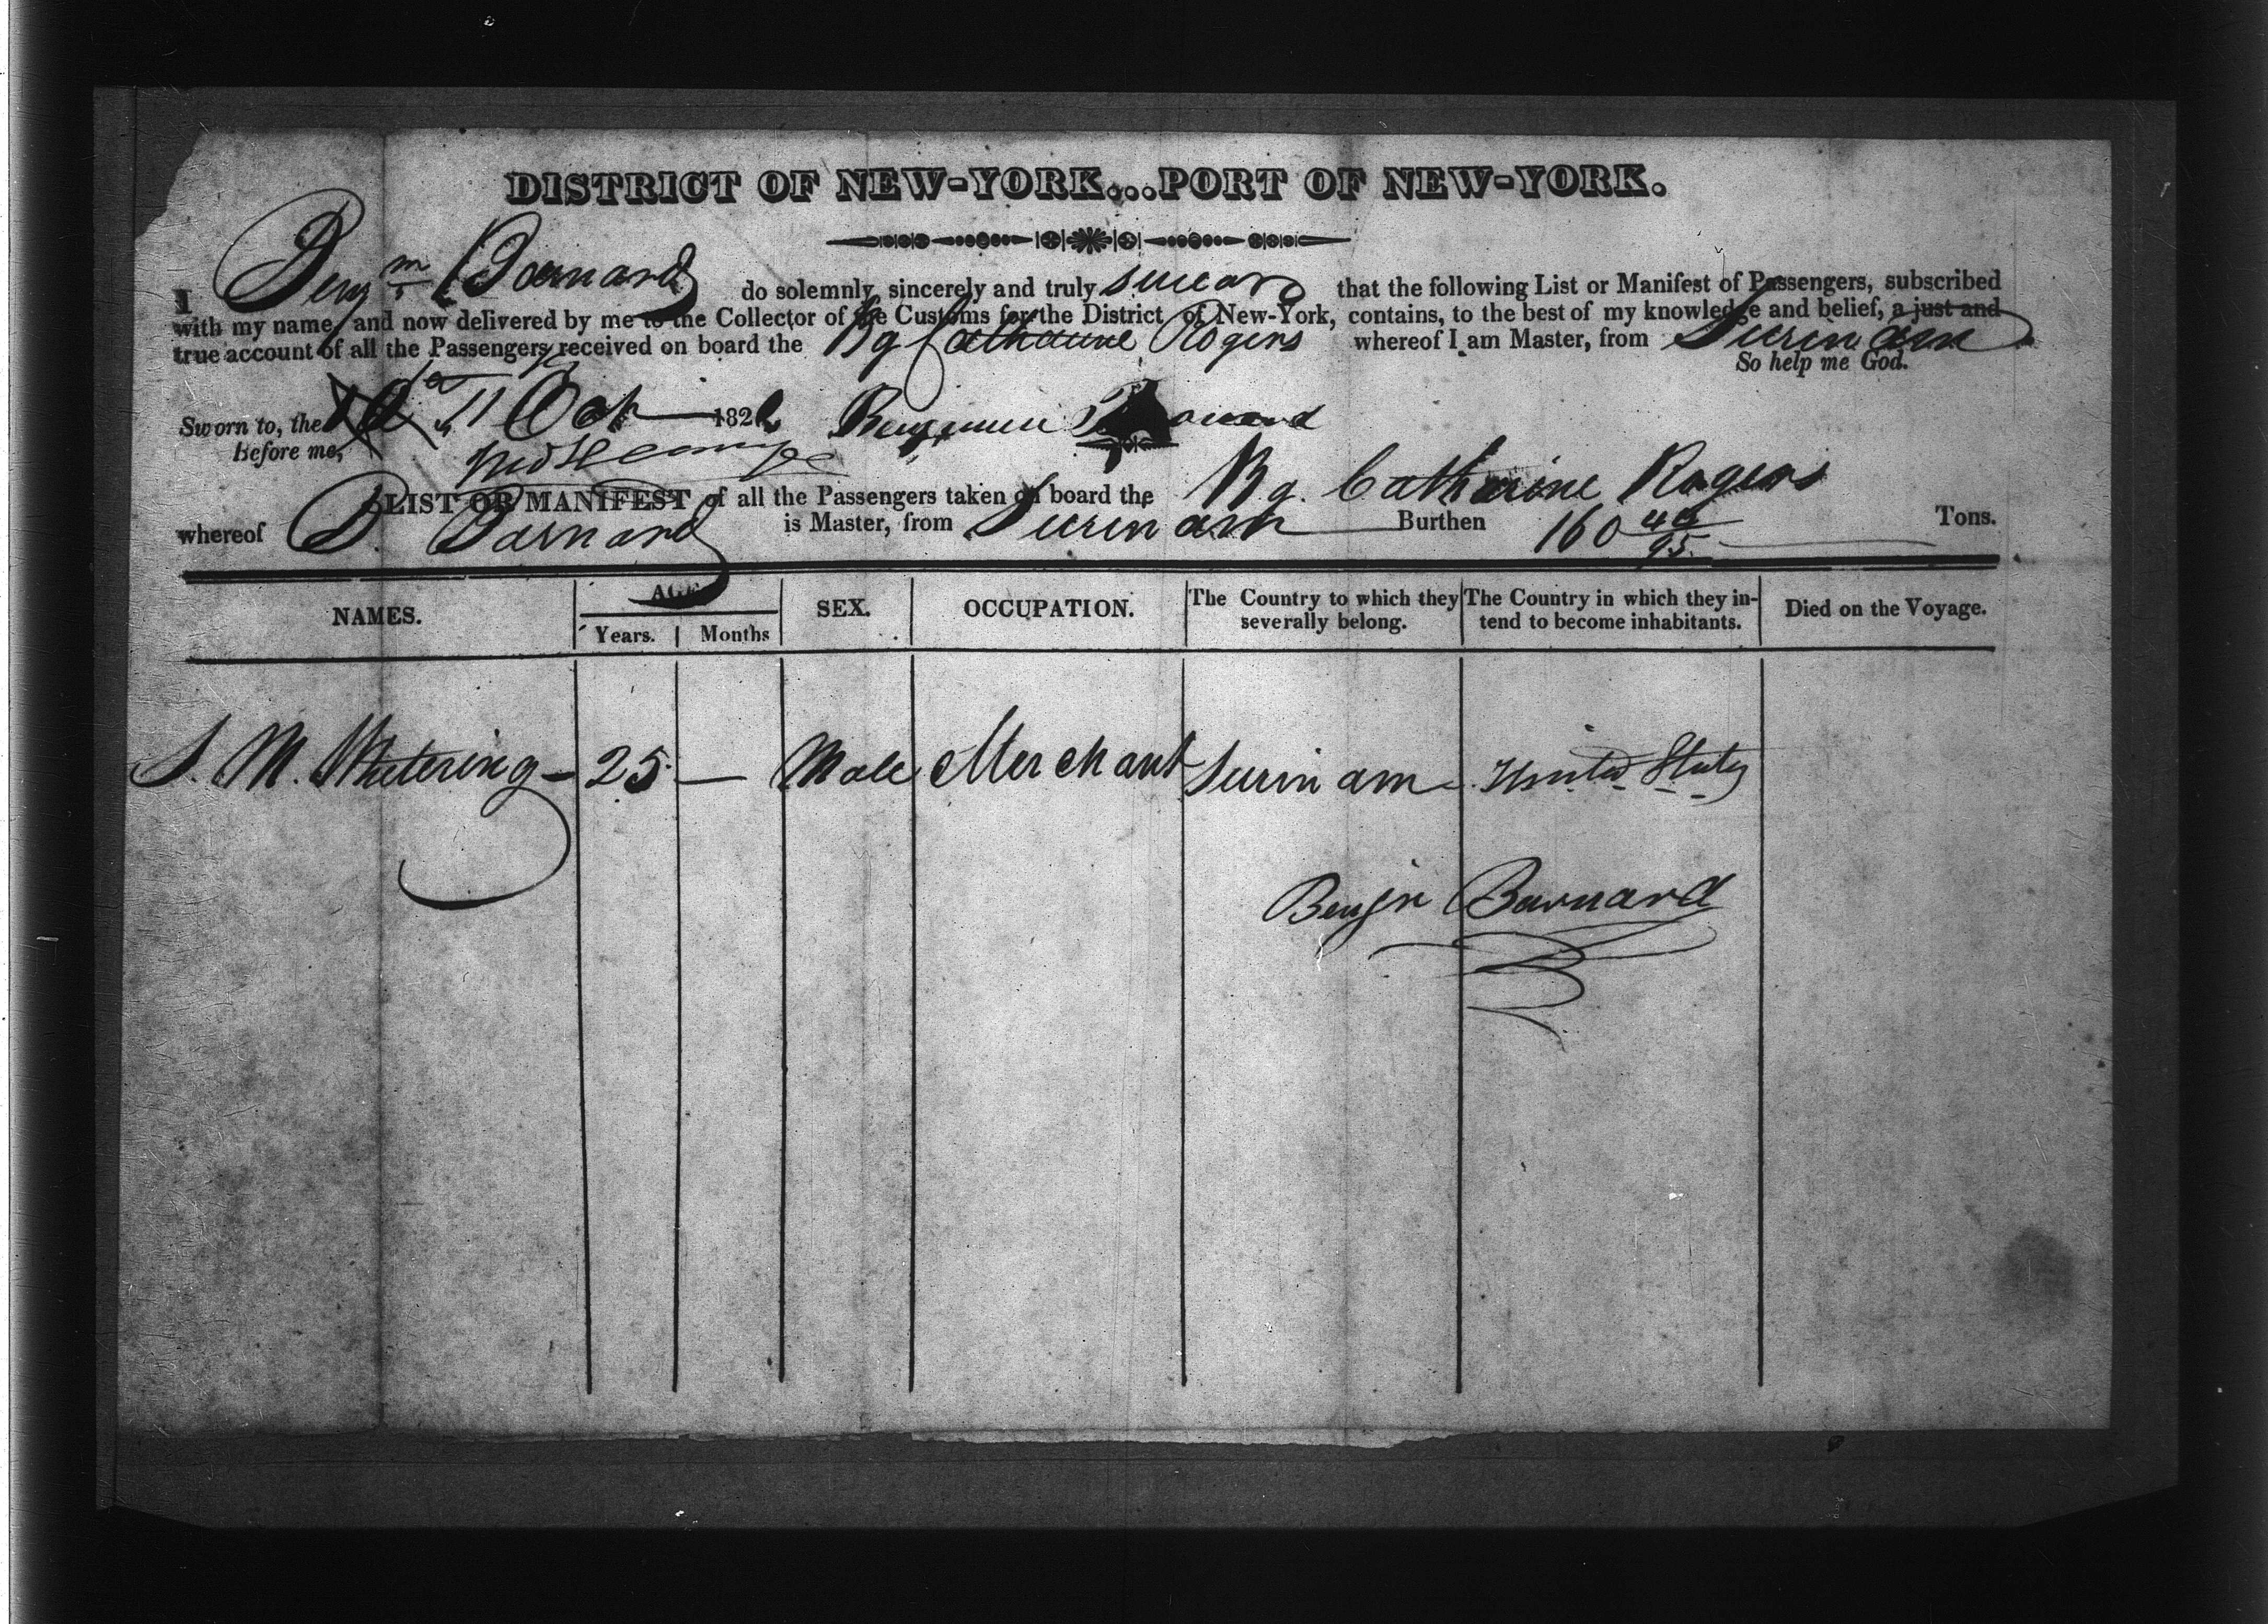 DISTRICT OF NEW-YORK...PORT OF NEW-YORK.
I Benjm Barnard do solemnly, sincerely and truly swear that the following List or Manifest of Passengers, subscribed
with my name, and now delivered by me to the Collector of the Customs for the District of New-York, contains, to the best of my knowledge and belief, a just and
true account of all the Passengers received on board the Bg Catharine Rogers whereof I am Master, from Surinam
So help me God.
Sworn to, the 11 Oct 182 Benjamin Barnard
Before me,
LIST OR MANIFEST of all the Passengers taken on board the Bg. Catharine Rogers
whereof B. Barnard is Master, from Surinam Burthen 160 44/95 Tons.
NAMES. AGE Years. Months SEX. OCCUPATION. The Country to which they severally belong. The Country in which they intend to become inhabitants. Died on the Voyage.
S. M. Whetering — 25 — Male Merchant Surinam United States
Benjn Barnard